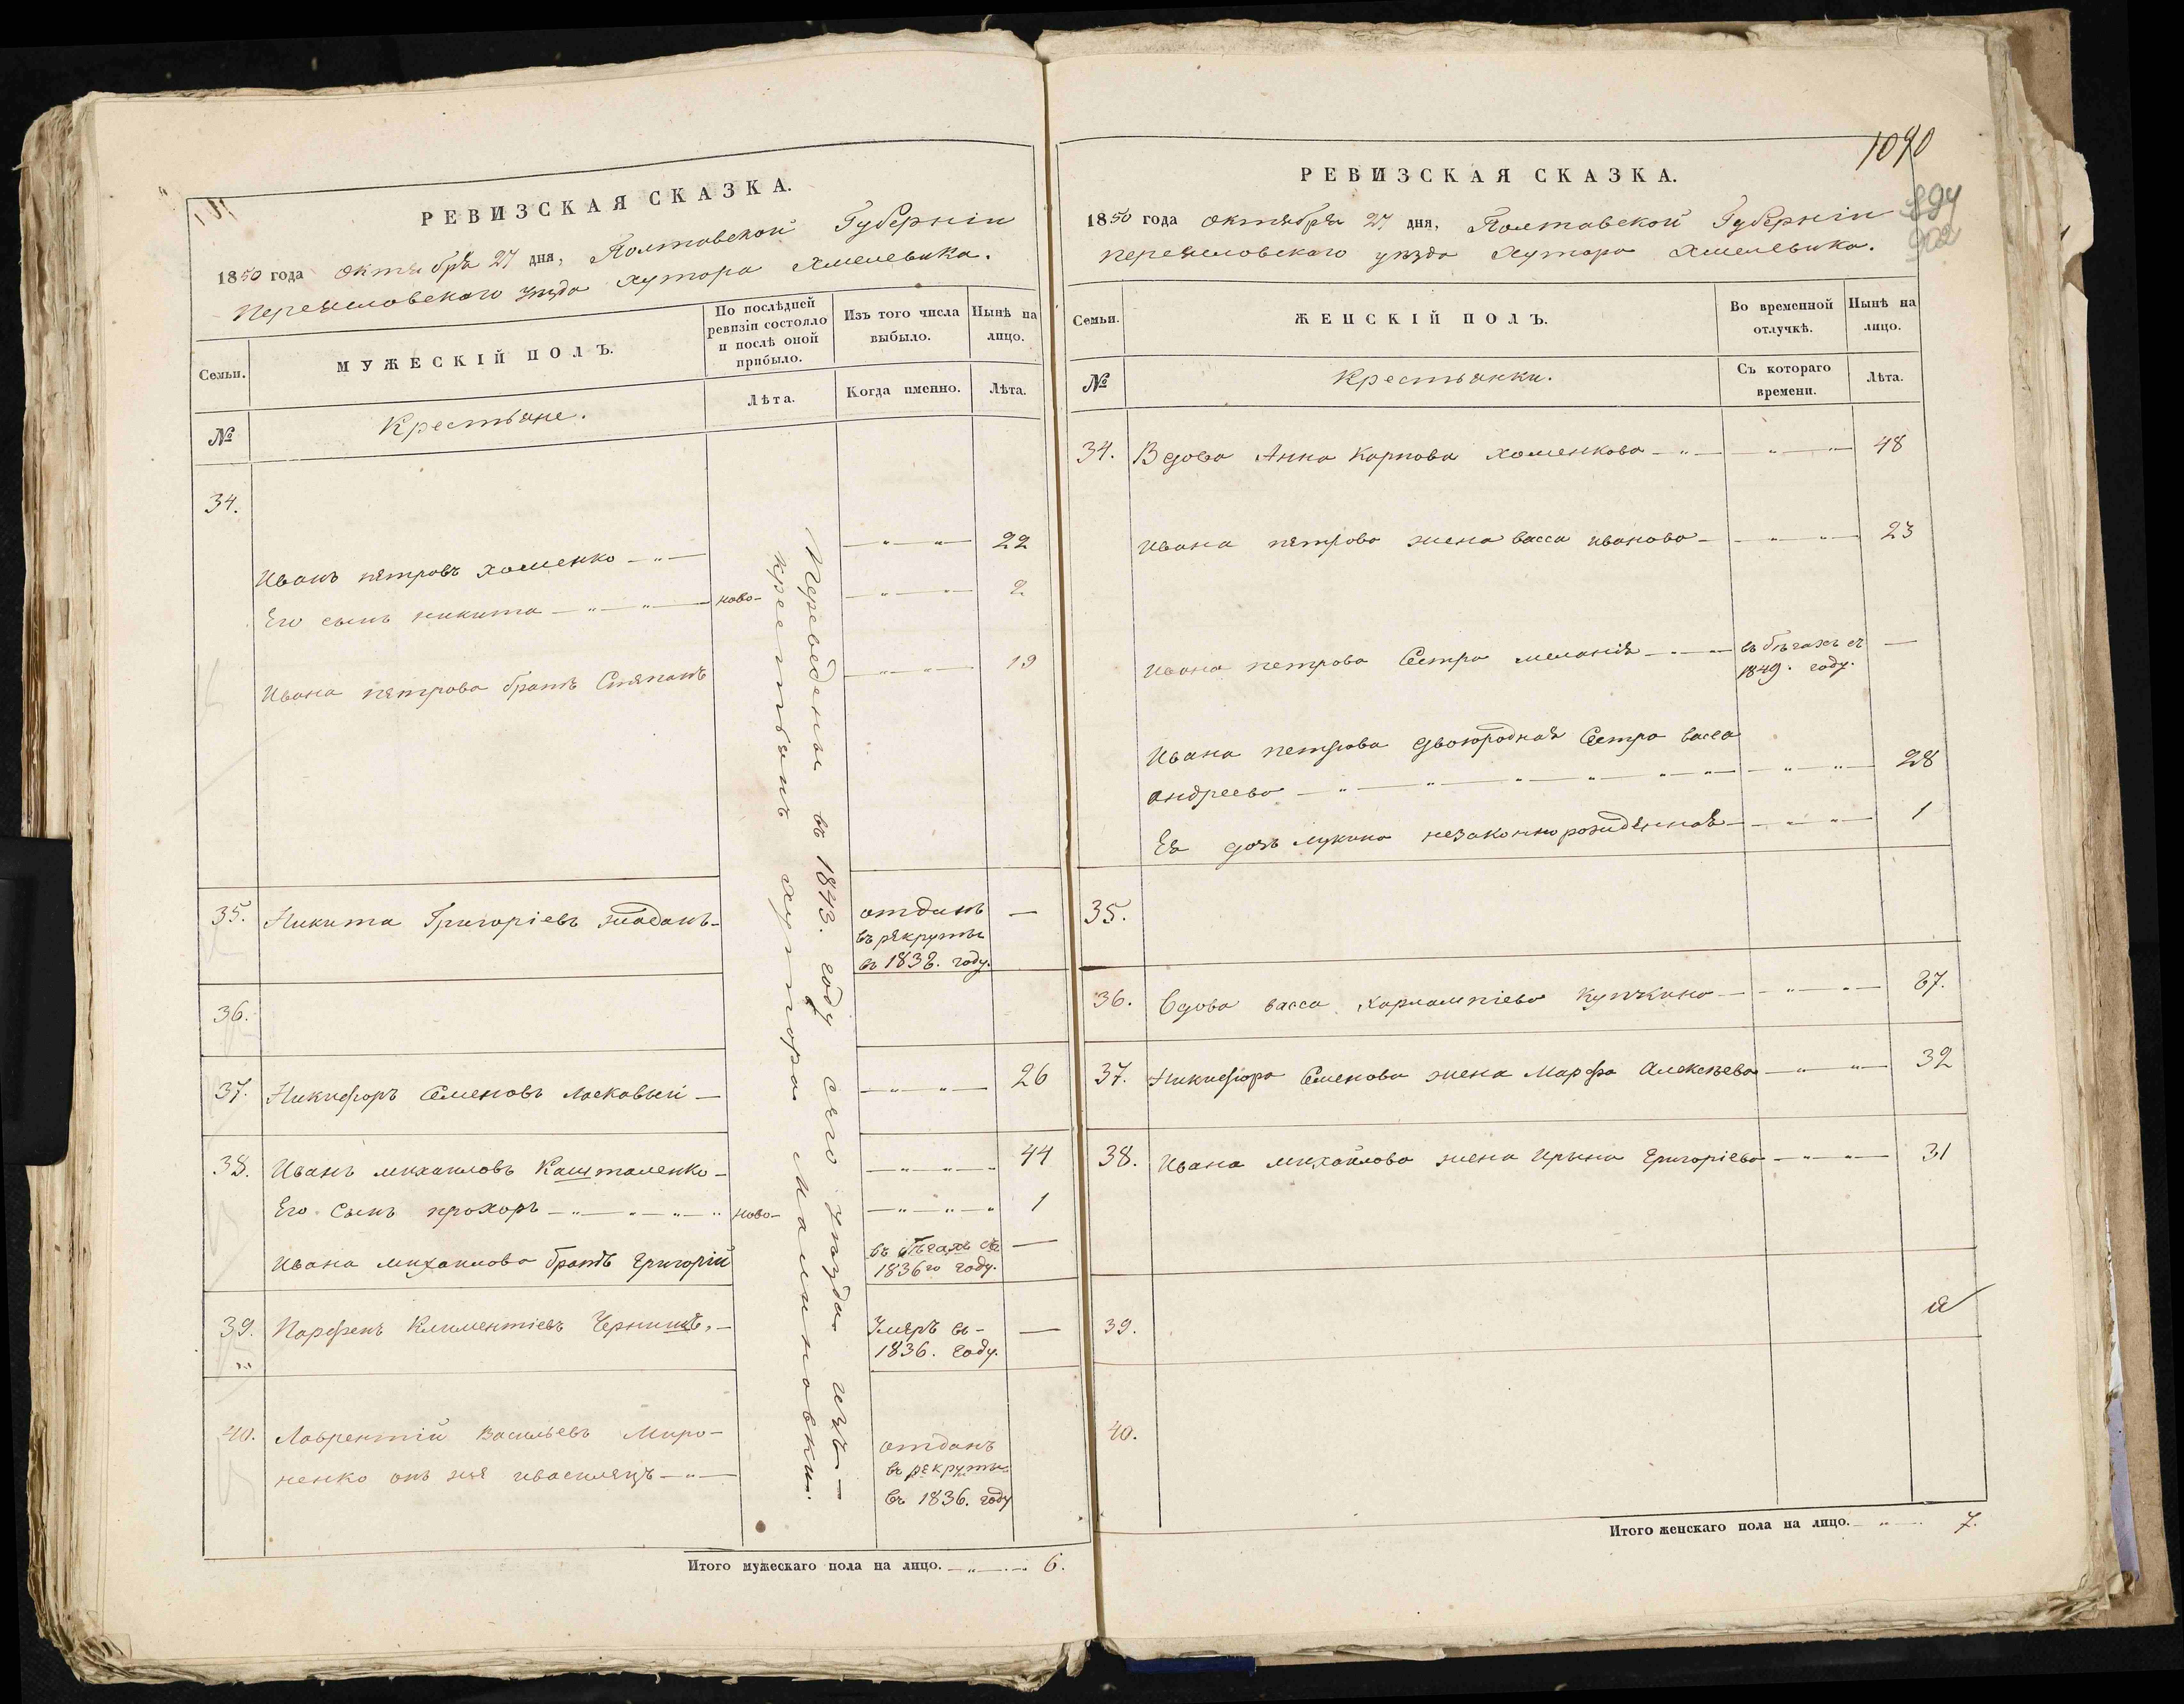 РЕВИЗСКАЯ СКАЗКА.
1850 года Октября 27 дня, Полтавской Губерніи
Переяславскаго уѣзда хутора Хмелевика.
Семьи.
МУЖЕСКІЙ ПОЛЪ.
По послѣдней
ревизіи состояло
и послѣ оной
прибыло.
Изъ того числа
выбыло.
Нынѣ на
лицо.
№
Крестьяне.
Лѣта.
Когда именно.
Лѣта.
34.
Иванъ петровъ хоменко 22
Его сынъ никита ново- 2
Ивана петрова братъ Степанъ 19
Переведены въ 1843. году сего уѣзда изъ
крестьянъ хутора Малиновки.
35. Никита Григоріевъ жаданъ отданъ —
въ рекруты
въ 1838. году.
36.
37. Никифоръ Семеновъ Ласкавый — 26
38. Иванъ михаиловъ Кашталенко 44
Его Сынъ прохоръ ново- 1
Ивана михаилова братъ григорій въ бѣгахъ съ —
1836го году.
39. Парфенъ Климентіевъ Чернишъ, Умеръ въ —
1836. году.
40. Лаврентій Васильевъ Миро- отданъ
ненко онъ же въ рекруты
въ 1836. году
Итого мужескаго пола на лицо. 6.
1090
894
902
РЕВИЗСКАЯ СКАЗКА.
1850 года Октября 27 дня, Полтавской Губерніи
переяславскаго уѣзда Хутора Хмелевика.
Семьи.
ЖЕНСКІЙ ПОЛЪ.
Во временной
отлучкѣ.
Нынѣ на
лицо.
№
Крестьянки.
Съ котораго
времени.
Лѣта.
34. Вдова Анна Карпова хоменкова 48
Ивана петрова жена васса иванова 23
Ивана петрова Сестра меланія въ бѣгахъ съ —
1849. году.
Ивана петрова двоюродная Сестра васса
андреева 28
Ея дочь лукина незаконнорожденная 1
35.
36. Вдова васса харлампіева 67.
37. Никифора Семенова жена Марфа Алексѣева 32
38. Ивана михайлова жена Ирина григоріева 31
39.
40.
Итого женскаго пола на лицо. 7.